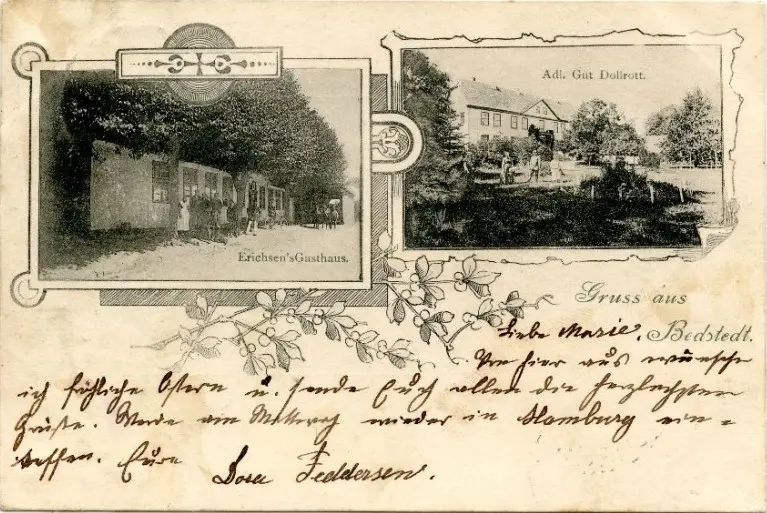 Adl. Gut Dollrott.
Erichsen's Gasthaus.
Gruss aus
Bedstedt.
Liebe Marie.
Von hier aus wünsche
ich fröhliche Ostern u. sende Euch allen die herzlichsten
Grüße. Werde am Mittwoch wieder in Hamburg ein-
treffen. Eure Dora Feddersen.